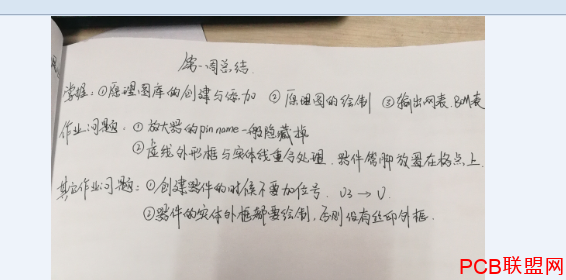 第一周总结.
掌握:①原理图库的创建与添加 ②原理图的绘制 ③输出网表.BOM表
作业问题:①放大器的pin name一般隐藏掉
②虚线外形框与实体线重合处理.器件管脚放置在格点上.
其它作业问题:①创建器件的时候不要加位号. U3→U
②器件的实体外框都要绘制,否则没有丝印外框.
PCB联盟网